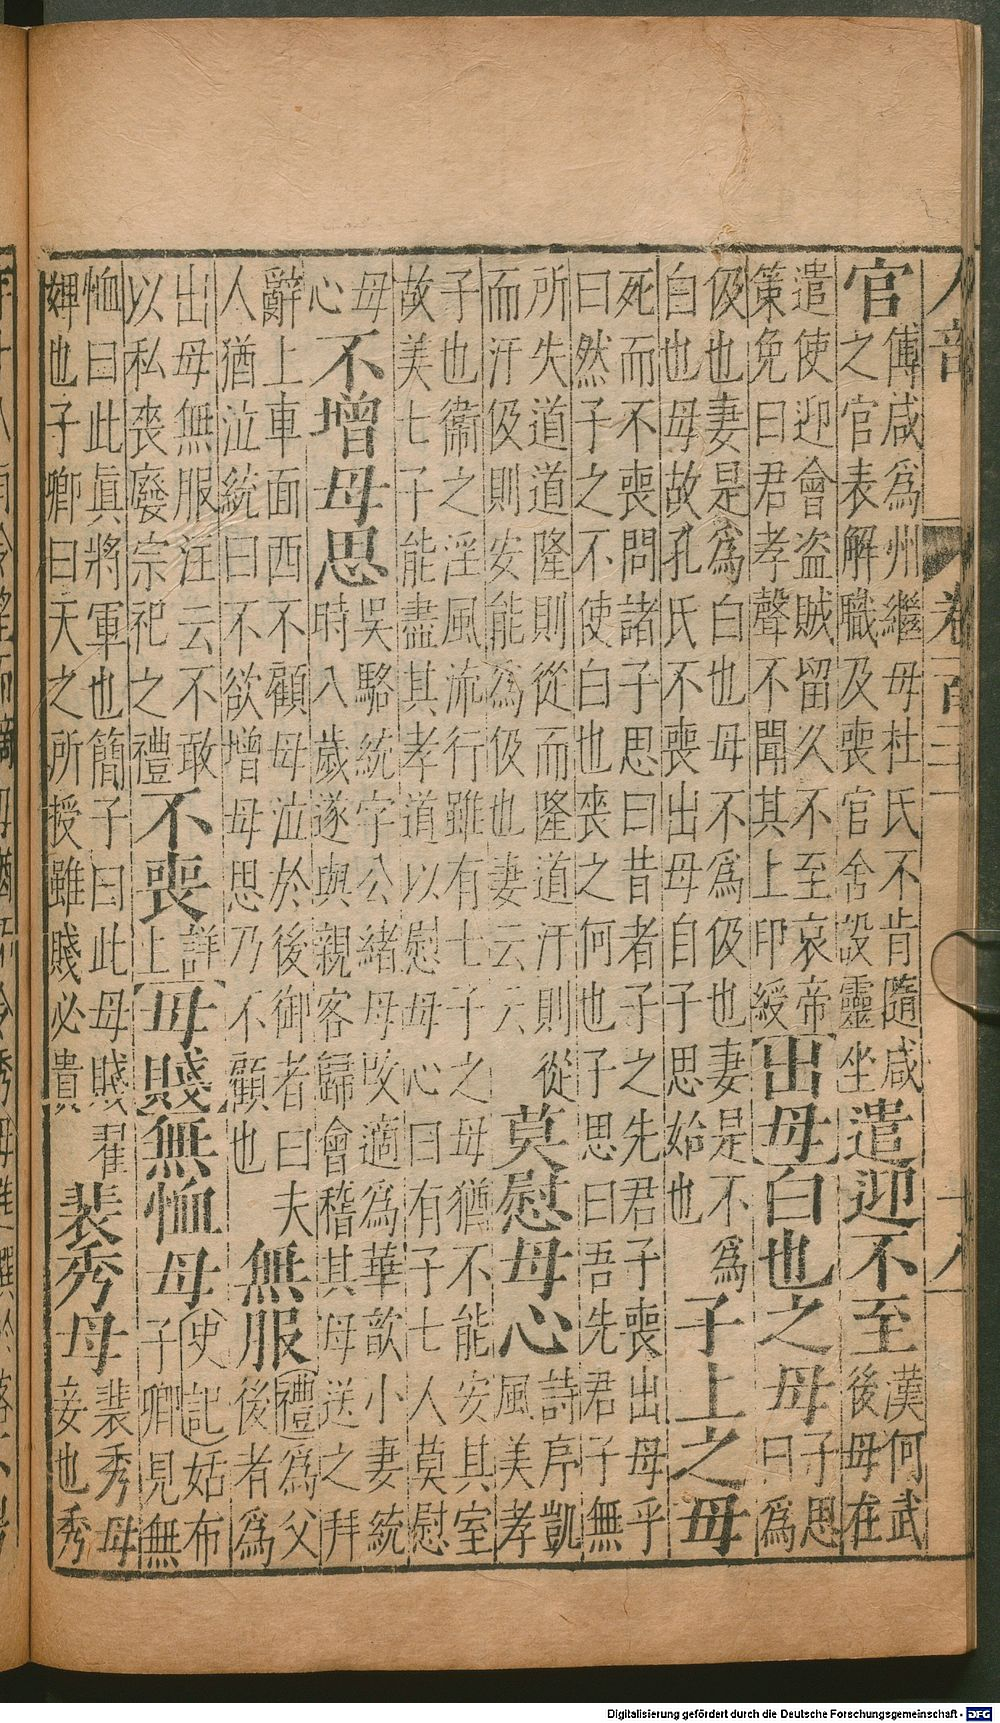 人部 卷百三 十八
官
傅咸爲州繼母杜氏不肯隨咸
之官表解職及喪官舍設靈坐
遣迎不至
漢何武
後母在
遣使迎會盜賊留久不至哀帝
策免曰君孝聲不聞其上印綬
出母白也之母
子思
曰爲
伋也妻是爲白也母不爲伋也妻是不爲
自也母故孔氏不喪出母自子思始也
子上之母
死而不喪問諸子思曰昔者子之先君子喪出母乎
曰然子之不使白也喪之何也子思曰吾先君子無
所失道道隆則從而隆道汙則從
而汙伋則安能爲伋也妻云云
莫慰母心
詩序凱
風美孝
子也衞之淫風流行雖有七子之母猶不能安其室
故美七子能盡其孝道以慰母心曰有子七人莫慰
母
心
不增母思
吳駱統字公緒母攺適爲華歆小妻統
時八歲遂與親客歸會稽其母送之拜
辭上車面西不顧母泣於後御者曰夫
人猶泣統曰不欲增母思乃不顧也
無服
禮爲父
後者爲
出母無服注云不敢
以私喪廢宗祀之禮
不喪
詳
上
母賤無恤母
史記姑布
子卿見無
恤曰此眞將軍也簡子曰此母賤翟
婢也子卿曰天之所授雖賤必貴
裴秀母
裴秀母
妾也秀
Digitalisierung gefördert durch die Deutsche Forschungsgemeinschaft - DFG